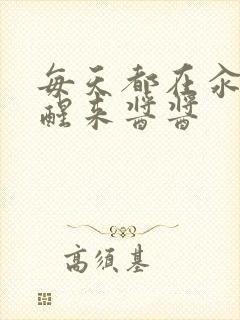 每天都在汆
醒来酱酱
高须基